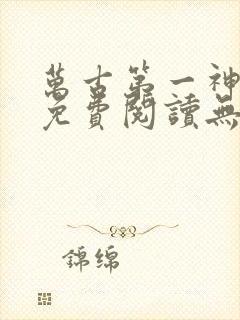 萬古第一神
免費閱讀無
錦綿